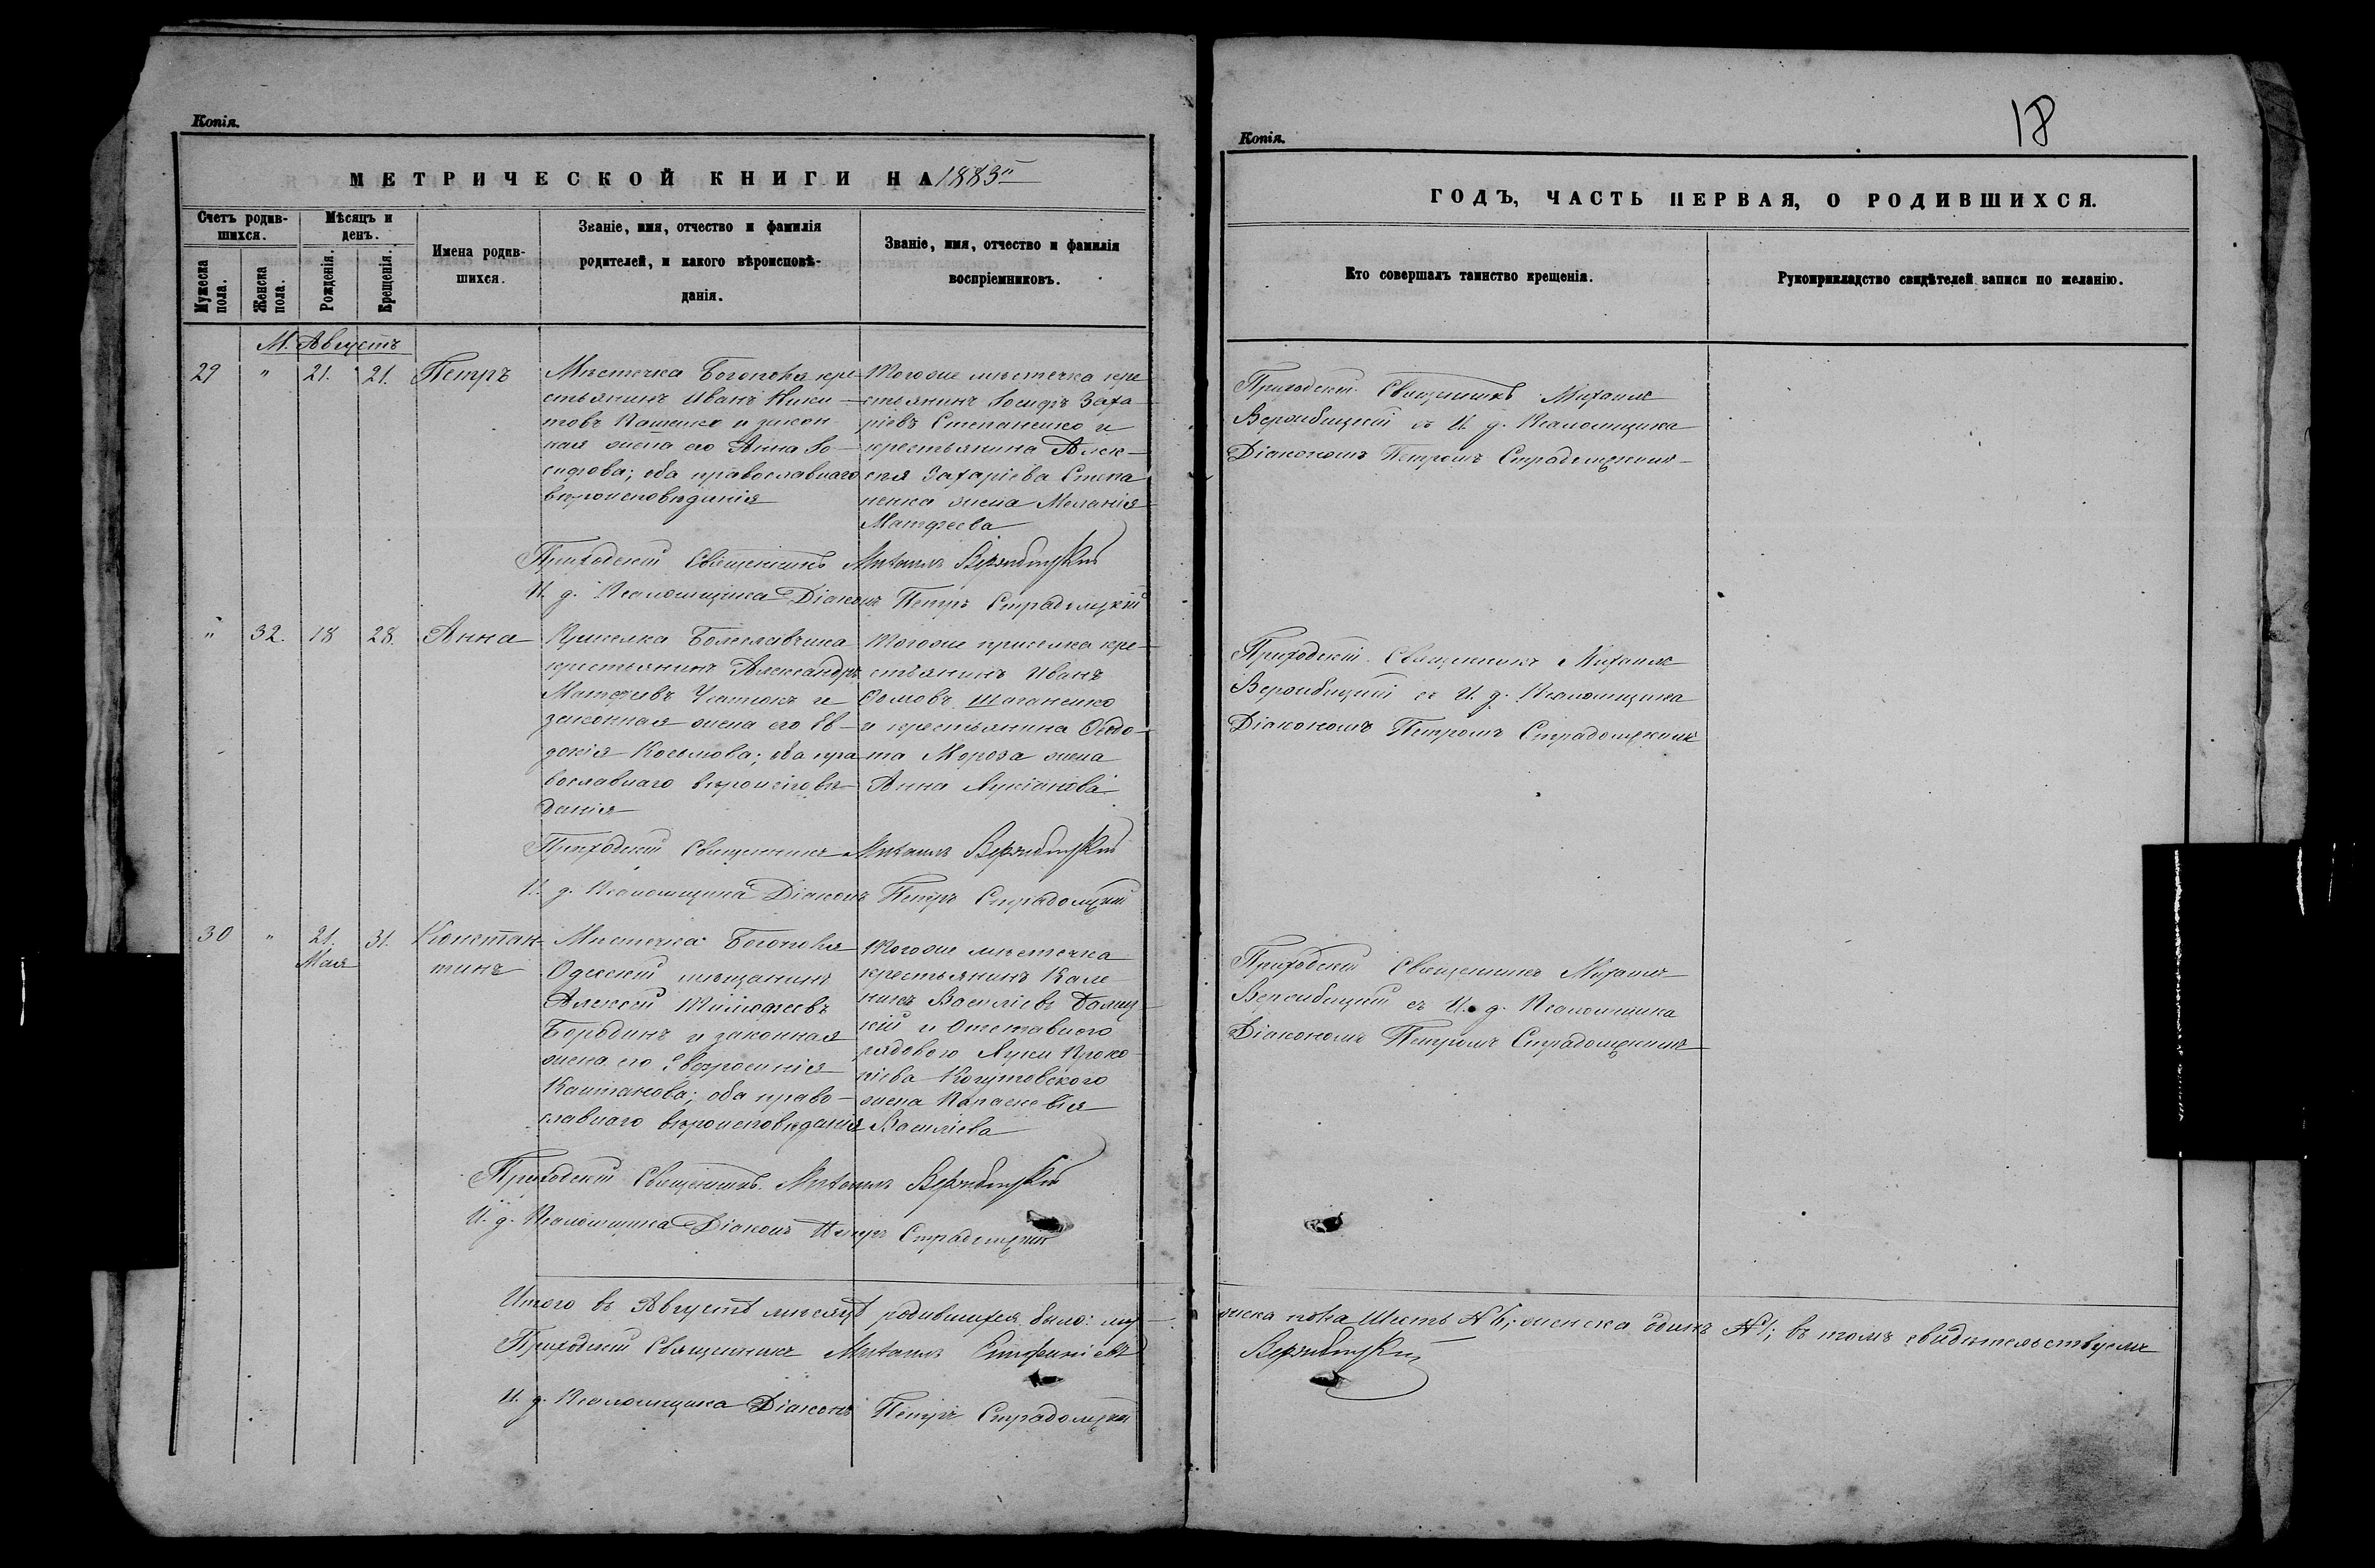 Копія.
МЕТРИЧЕСКОЙ КНИГИ НА 1883й
Счетъ родив-
шихся.
Мѣсяцъ и
день.
Мужеска
пола.
Женска
пола.
Рожденія.
Крещенія.
Имена родив-
шихся.
Званіе, имя, отчество и фамилія
родителей, и какого вѣроисповѣ-
данія.
Званіе, имя, отчество и фамилія
воспріемниковъ.
М. Августъ
29 " 21. 21. Петръ
Мѣстечка Богополя кре-
стьянинъ Иванъ Ники-
товъ и закон
ная жена его Анна Іо-
сифова; оба православнаго
вѣроисповѣданія
Тогоже мѣстечка кре
стьянинъ Іосифъ Заха
ріевъ Степаненко и
крестьянина Алек-
сѣя Захаріева Степа
ненка жена Меланія
Матфеева
Приходскій Священникъ Михаилъ Вержбицкій
И. д. Псаломщика Діаконъ Петръ Страдомцкій
" 32. 18 28. Анна
Приселка
крестьянинъ Александръ
Матфеевъ и
законная жена его Ев-
докія Косьмова; оба пра
вославнаго вѣроисповѣ-
данія
Тогоже приселка кре-
стьянинъ Иванъ
Ѳомовъ
и крестьянина Ѳедо-
та Мороза жена
Анна Лукіанова
Приходскій Священникъ Михаилъ Вержбицкій
И. д. Псаломщика Діаконъ Петръ Страдомцкій
30 " 21. 31. Констан-
Мая тинъ
Мѣстечка Богополя
Одесскій мѣщанинъ
Алексѣй Тимофеевъ
Бородинъ и законная
жена его Евфросинія
оба право-
славнаго вѣроисповѣданія
Тогоже мѣстечка
крестьянинъ
Василіевъ
и Отставного
рядового Луки Проко
піева Когутовского
жена Параскевія
Василіева
Приходскій Священникъ Михаилъ Вержбицкій
И. д. Псаломщика Діаконъ Петръ Страдомцкій
Итого въ Августѣ мѣсяцѣ родившихся было: му-
Приходскій Священникъ Михаилъ
И. д. Псаломщика Діаконъ Петръ Страдомцкій
Копія.
18
ГОДЪ, ЧАСТЬ ПЕРВАЯ, О РОДИВШИХСЯ.
Кто совершалъ таинство крещенія.
Рукоприкладство свидѣтелей записи по желанію.
Приходскій Священникъ Михаилъ
Вержбицкій съ И. д. Псаломщика
Діакономъ Петромъ Страдомцкимъ
Приходскій Священникъ Михаилъ
Вержбицкій съ И. д. Псаломщика
Діакономъ Петромъ Страдомцкимъ
Приходскій Священникъ Михаилъ
Вержбицкій съ И. д. Псаломщика
Діакономъ Петромъ Страдомцкимъ
жеска пола Шесть № 6; женска одинъ № 1; въ томъ свидѣтельствуемъ
Вержбицкій